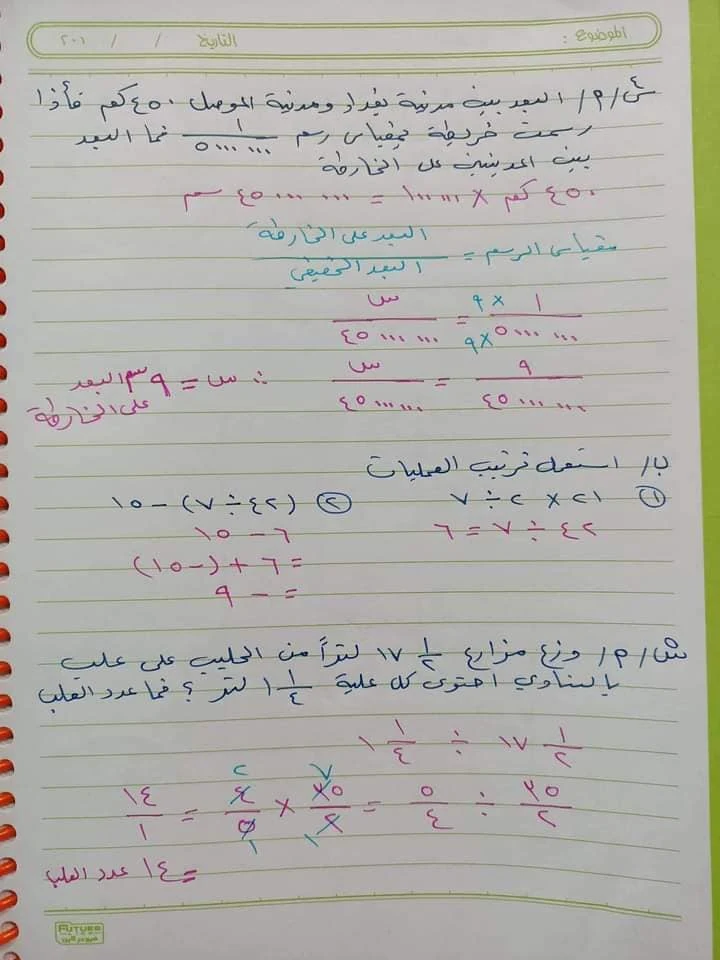 الموضوع : التاريخ / / ٢٠١
س٤/ م/ البعد بين مدينة بغداد ومدينة الموصل ٤٥٠ كم فأذا
رسمت خريطة بمقياس رسم ١/٥٠٠٠٠٠٠ فما البعد
بين المدينتين على الخارطة
٤٥٠ كم × ١٠٠٠٠٠ = ٤٥٠٠٠٠٠٠ سم
مقياس الرسم = البعد على الخارطة / البعد الحقيقي
١ × ٩ / ٥٠٠٠٠٠٠ × ٩ = س / ٤٥٠٠٠٠٠٠
٩ / ٤٥٠٠٠٠٠٠ = س / ٤٥٠٠٠٠٠٠ ∴ س = ٩ سم البعد
على الخارطة
ب/ استعمل ترتيب العمليات
① ٢١ × ٢ ÷ ٧ ② (٤٢ ÷ ٧) − ١٥
٤٢ ÷ ٧ = ٦ ٦ − ١٥
= ٦ + (−١٥)
= − ٩
س/ م/ وزع مزارع ١٧ ١/٢ لتراً من الحليب على علب
بالتساوي احتوى كل علبة ١ ١/٤ لتر ؟ فما عدد العلب
١٧ ١/٢ ÷ ١ ١/٤
٣٥/٢ ÷ ٥/٤ = ٣٥/٢ × ٤/٥ = ١٤/١
٧ ٢ ١ ١
= ١٤ عدد العلب
FUTURE